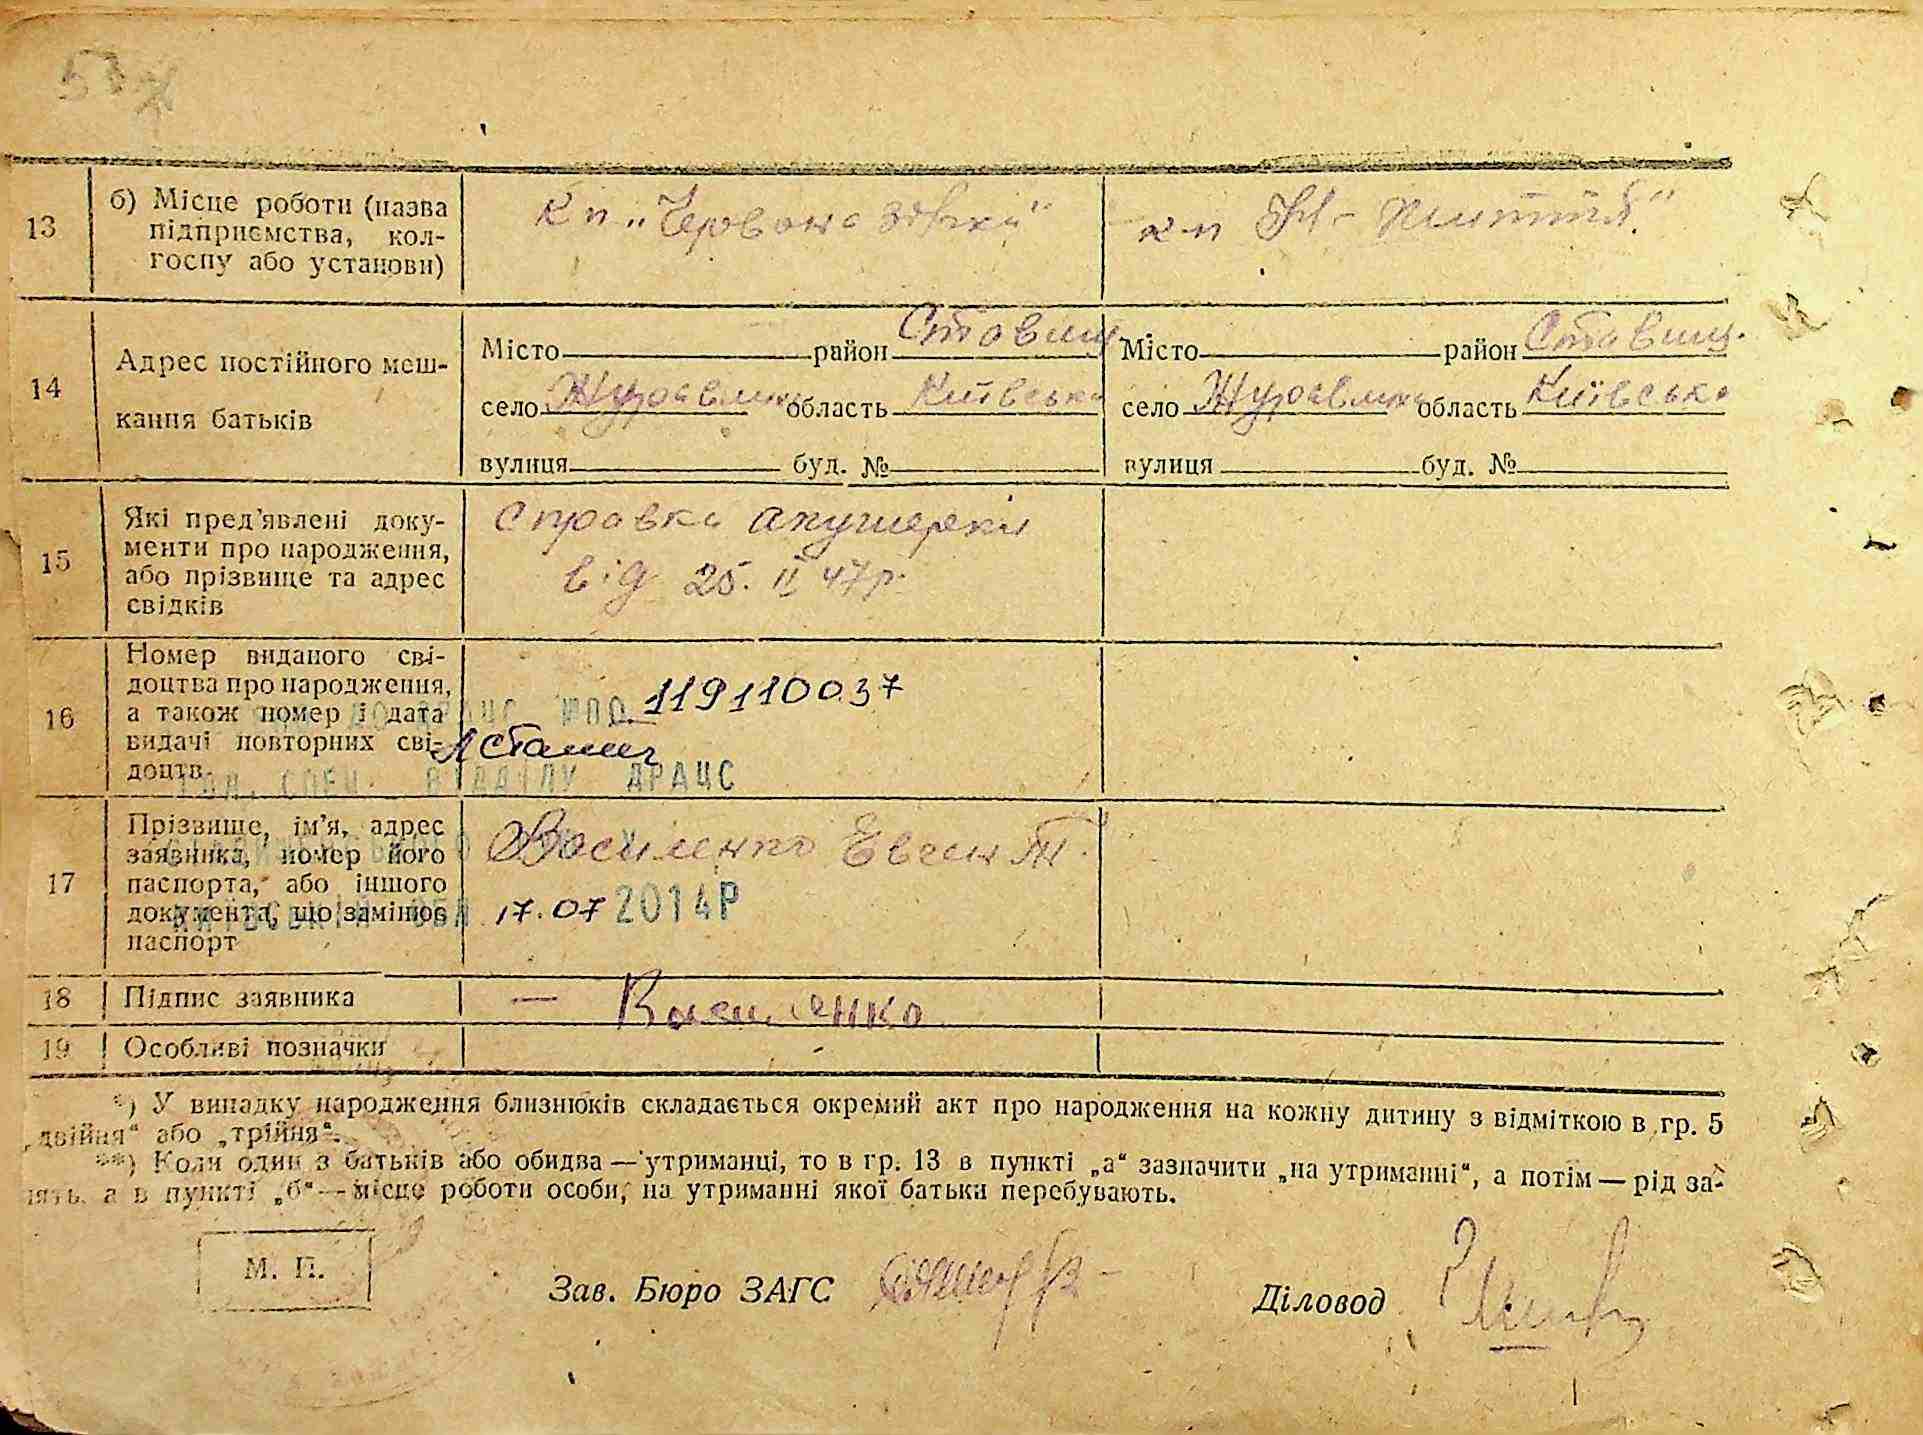 13
б) Місце роботи (назва
підприємства, кол-
госпу або установи)
к-п „Червона зірка"
к-п Життя"
14
Адрес постійного меш-
кання батьків
Місто район Ставищ
село Журавлиха область Київська
вулиця буд. №
Місто район Ставищ.
село Журавлиха область Київська
вулиця буд. №
15
Які пред'явлені доку-
менти про народження,
або прізвище та адрес
свідків
Справка акушерки
від 25. II 47 р.
16
Номер виданого сві-
доцтва про народження,
а також номер і дата
видачі повторних сві-
доцтв
119110037
ГОЛ. СПЕЦ. ВІДДІЛУ ДРАЦС
17
Прізвище, ім'я, адрес
заявника, номер його
паспорта, або іншого
документа, що замінює
паспорт
Василенко Евген Т.
КИЇВСЬКІЙ ОБЛ 17.07 2014Р
18
Підпис заявника
— Василенко
19
Особливі позначки
*) У випадку народження близнюків складається окремий акт про народження на кожну дитину з відміткою в гр. 5
„двійня" або „трійня".
**) Коли один з батьків або обидва — утриманці, то в гр. 13 в пункті „а" зазначити „на утриманні", а потім — рід за-
нять, а в пункті „б" — місце роботи особи, на утриманні якої батьки перебувають.
М. П.
Зав. Бюро ЗАГС
Діловод